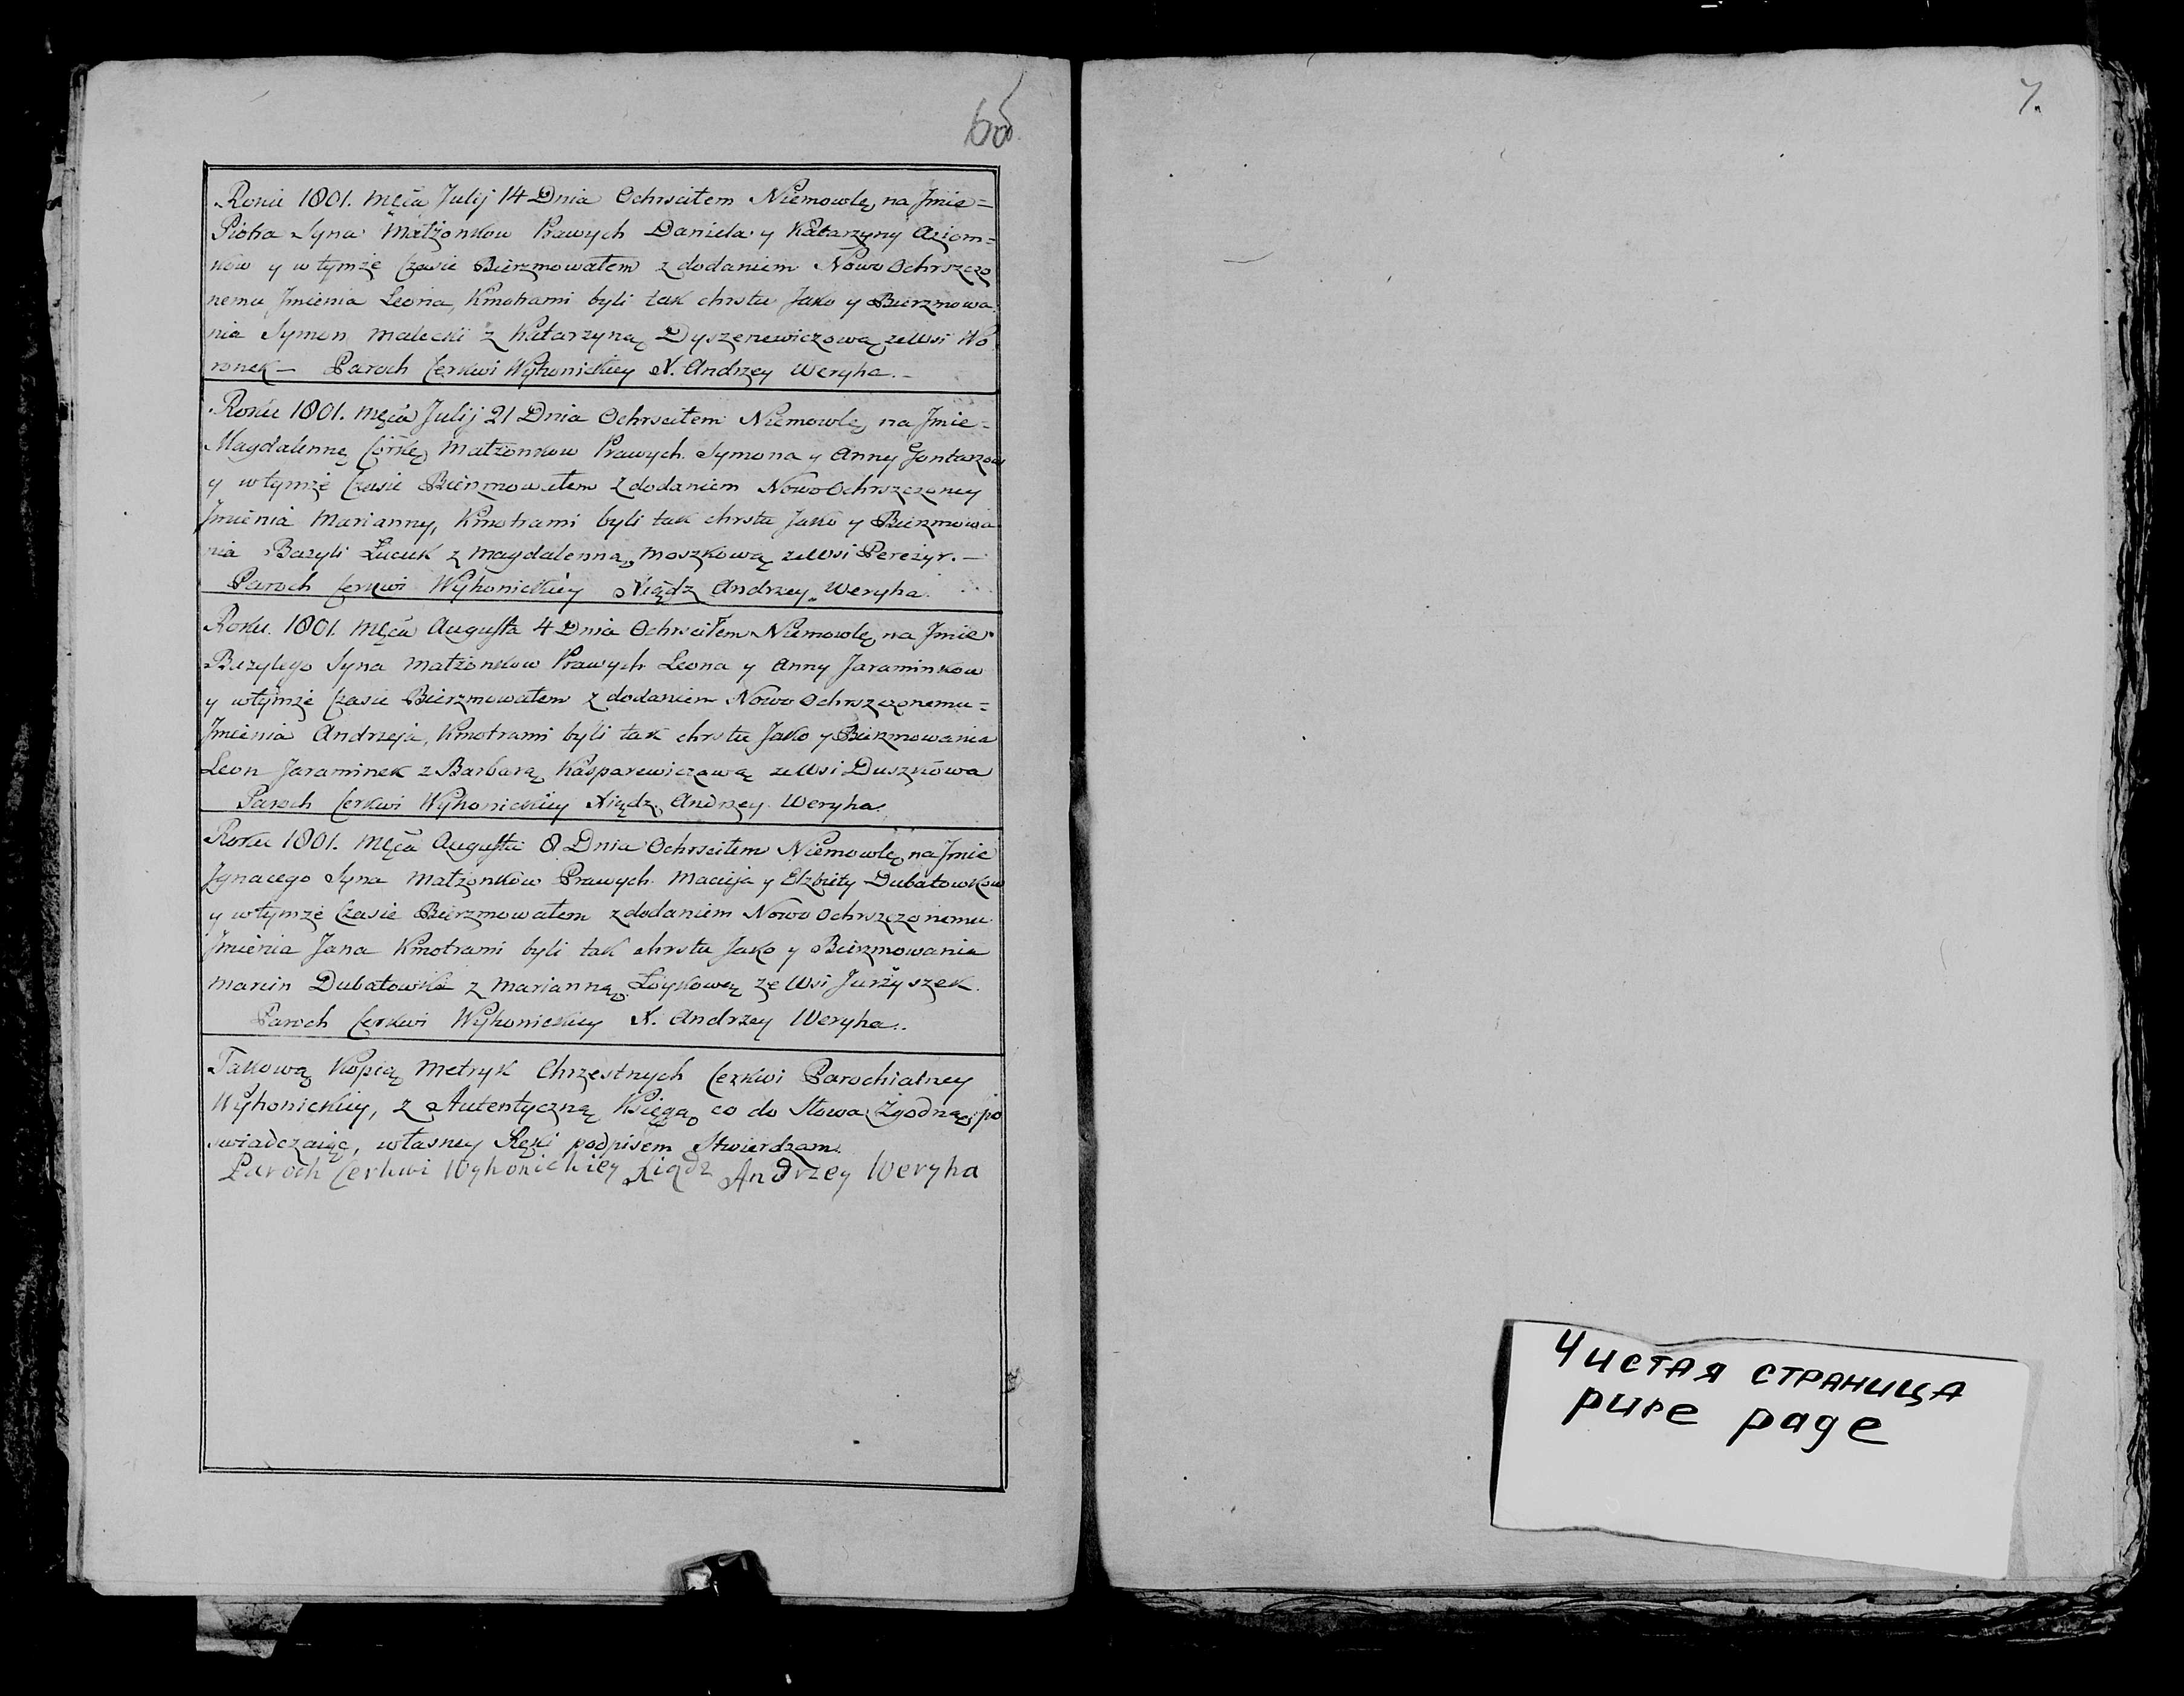 Roku 1801. Męca Julij 14 Dnia Ochrsciłem Niemowlę na Jmie=
Piotra Syna Małżonkow Prawych Daniela y Katarzyny Aziom=
kow y w tymże Czasie Bierzmowałem z dodaniem Nowo Ochrszczo
nemu Jmienia Leona, Kmotrami byli tak chrstu Jako y Bierzmowa
nia Symon Malecki z Katarzyną Dyszenewiczową ze Wsi Wo
ronek — Paroch Cerkwi Wyhonickiey X. Andrzey Weryha. –
Roku 1801. Męca Julij 21 Dnia Ochrsciłem Niemowlę na Jmie=
Magdalennę Córkę Małżonkow Prawych Symona y Anny Gontarzow
y w tymże Czasie Bierzmowałem z dodaniem Nowo Ochrszczoney
Jmienia Marianny, Kmotrami byli tak chrstu Jako y Bierzmowa
nia Bazyli Łucuk z Magdalenną Moszkową ze Wsi Pereżyr. —
Paroch Cerkwi Wyhonickiey Xiądz Andrzey Weryha.
Roku 1801. Męca Augusta 4 Dnia Ochrsciłem Niemowlę na Jmie
Bazylego Syna Małżonkow Prawych Leona y Anny Jaraminkow
y w tymże Czasie Bierzmowałem z dodaniem Nowo Ochrszczonemu=
Jmienia Andrzeja, Kmotrami byli tak chrstu Jako y Bierzmowania
Leon Jaraminek z Barbarą Kasparewiczową ze Wsi Duszkowa
Paroch Cerkwi Wyhonickiey Xiądz Andrzey Weryha.
Roku 1801. Męca Augusta 8 Dnia Ochrsciłem Niemowlę na Jmie
Jgnacego Syna Małżonkow Prawych Macieja y Elżbiety Dubatowkow
y w tymże Czasie Bierzmowałem z dodaniem Nowo Ochrszczonemu
Jmienia Jana Kmotrami byli tak chrstu Jako y Bierzmowania
Marcin Dubatowka z Marianną Łoykową ze Wsi Jurżyszek.
Paroch Cerkwi Wyhonickiey X. Andrzey Weryha.
Takową Kopią Metryk Chrzestnych Cerkwi Parochialney
Wyhonickiey, z Autentyczną Księgą co do Słowa Zgodną po
swiadczaiąc, własney Ręki podpisem Stwierdzam.
Paroch Cerkwi Wyhonickiey Xiądz Andrzey Weryha
7.
Чистая страница
pure page